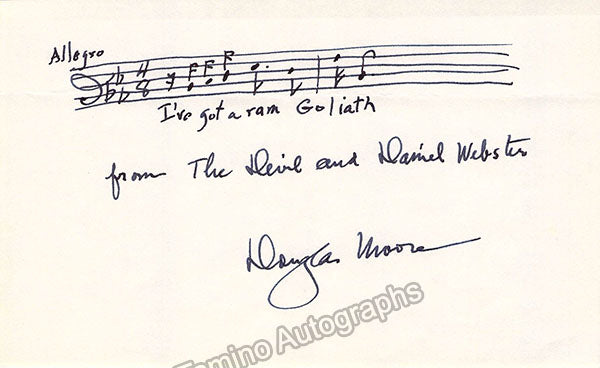 Allegro
I've got a ram Goliath
from The Devil and Daniel Webster
Douglas Moore
Tamino Autographs